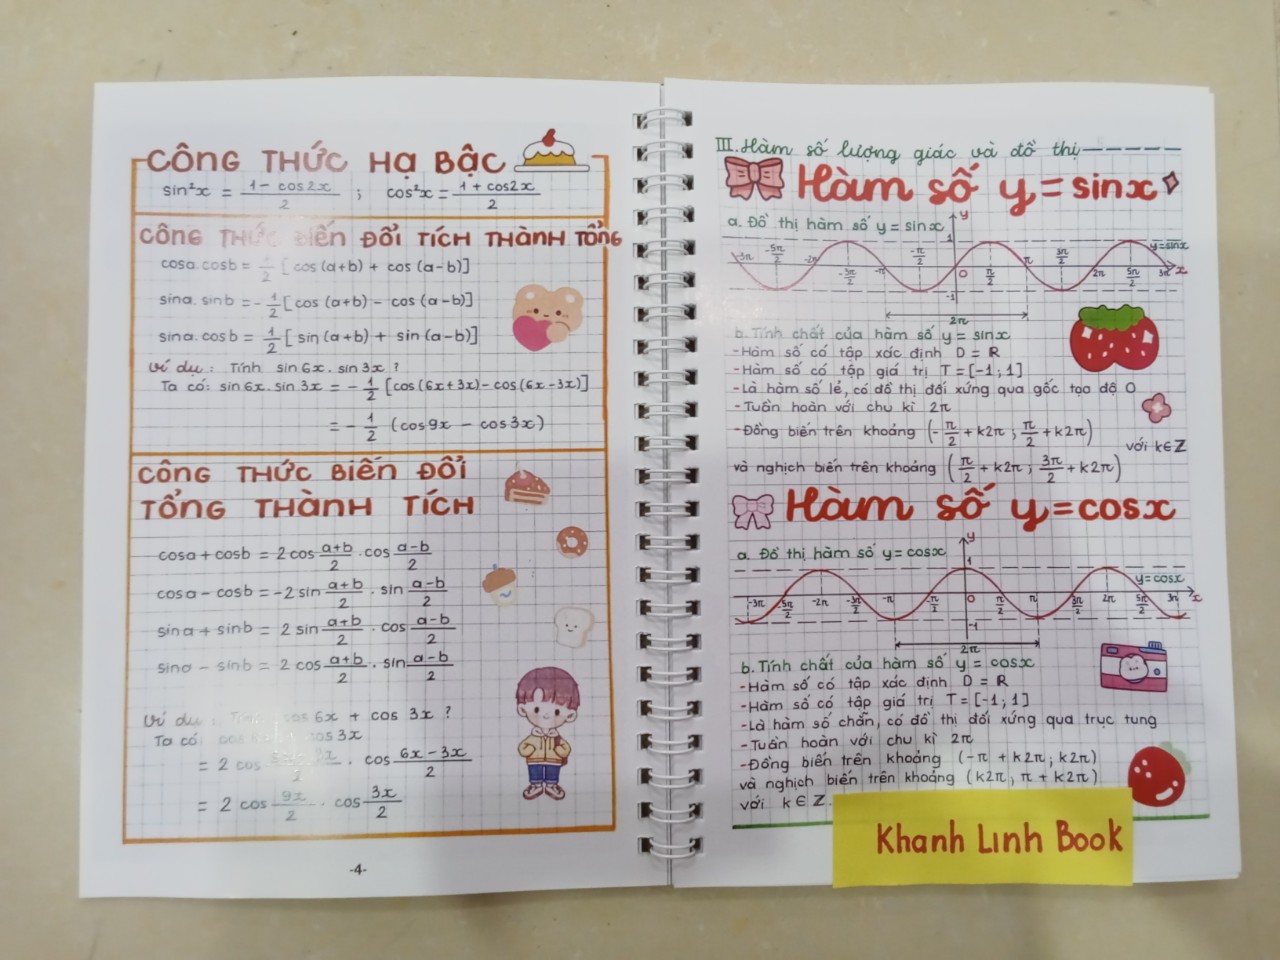 CÔNG THỨC HẠ BẬC
sin²x = (1 - cos2x)/2 ; cos²x = (1 + cos2x)/2
CÔNG THỨC BIẾN ĐỔI TÍCH THÀNH TỔNG
cosa.cosb = 1/2 [cos(a+b) + cos(a-b)]
sina.sinb = -1/2 [cos(a+b) - cos(a-b)]
sina.cosb = 1/2 [sin(a+b) + sin(a-b)]
Ví dụ: Tính sin6x.sin3x ?
Ta có: sin6x.sin3x = -1/2 [cos(6x+3x)-cos(6x-3x)]
= -1/2 (cos9x - cos3x)
CÔNG THỨC BIẾN ĐỔI
TỔNG THÀNH TÍCH
cosa + cosb = 2cos (a+b)/2 . cos (a-b)/2
cosa - cosb = -2sin (a+b)/2 . sin (a-b)/2
sina + sinb = 2sin (a+b)/2 . cos (a-b)/2
sina - sinb = 2cos (a+b)/2 . sin (a-b)/2
Ví dụ : Tính cos6x + cos 3x ?
Ta có: cos 3x
= 2 cos . cos (6x-3x)/2
= 2 cos 9x/2 . cos 3x/2
-4-
III. Hàm số lượng giác và đồ thị
Hàm số y = sinx
a. Đồ thị hàm số y = sinx
y
1
y=sinx
-3π -5π/2 -2π -3π/2 -π -π/2 O π/2 π 3π/2 2π 5π/2 3π x
-1
2π
b. Tính chất của hàm số y = sinx
-Hàm số có tập xác định D = R
-Hàm số có tập giá trị T = [-1;1]
-Là hàm số lẻ, có đồ thị đối xứng qua gốc tọa độ O
-Tuần hoàn với chu kì 2π
-Đồng biến trên khoảng (-π/2 + k2π ; π/2 + k2π)
với k∈Z
và nghịch biến trên khoảng (π/2 + k2π ; 3π/2 + k2π)
Hàm số y = cosx
a. Đồ thị hàm số y = cosx
y
1
y=cosx
-3π -5π/2 -2π -3π/2 -π -π/2 O π/2 π 3π/2 2π 5π/2 3π x
-1
2π
b. Tính chất của hàm số y = cosx
-Hàm số có tập xác định D = R
-Hàm số có tập giá trị T = [-1;1]
-Là hàm số chẵn, có đồ thị đối xứng qua trục tung
-Tuần hoàn với chu kì 2π
-Đồng biến trên khoảng (-π + k2π; k2π)
và nghịch biến trên khoảng (k2π; π + k2π)
với k ∈ Z.
Khanh Linh Book